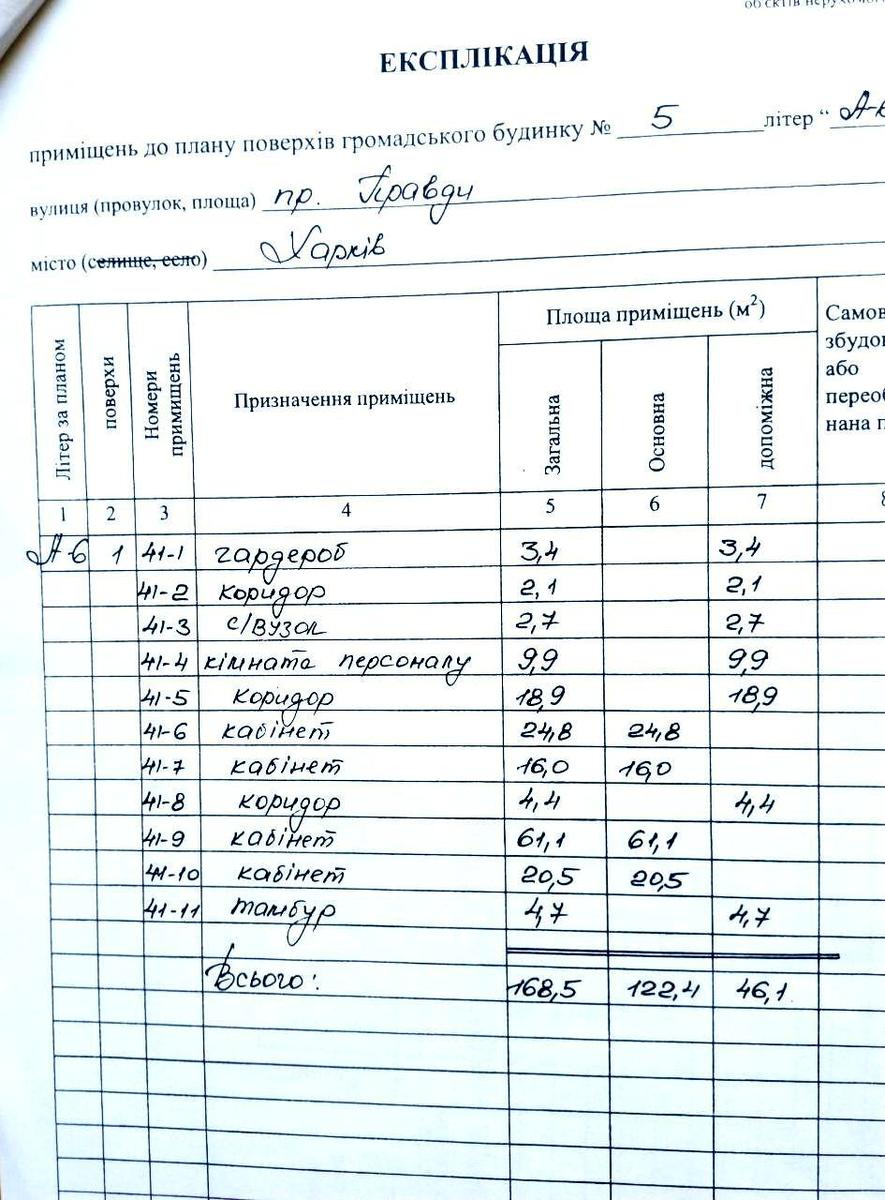 ЕКСПЛІКАЦІЯ
приміщень до плану поверхів громадського будинку № 5 літер "А-
вулиця (провулок, площа) пр. Правди
місто (селище, село) Харків
Літер за планом | поверхи | Номери примищень | Призначення приміщень | Площа приміщень (м²) | Самов
збудо
або
перео
нана п
Загальна | Основна | допоміжна
1 2 3 4 5 6 7
А-6 1 41-1 гардероб 3,4 3,4
41-2 коридор 2,1 2,1
41-3 с/вузол 2,7 2,7
41-4 кімната персоналу 9,9 9,9
41-5 коридор 18,9 18,9
41-6 кабінет 24,8 24,8
41-7 кабінет 16,0 16,0
41-8 коридор 4,4 4,4
41-9 кабінет 61,1 61,1
41-10 кабінет 20,5 20,5
41-11 тамбур 4,7 4,7
Всього: 168,5 122,4 46,1